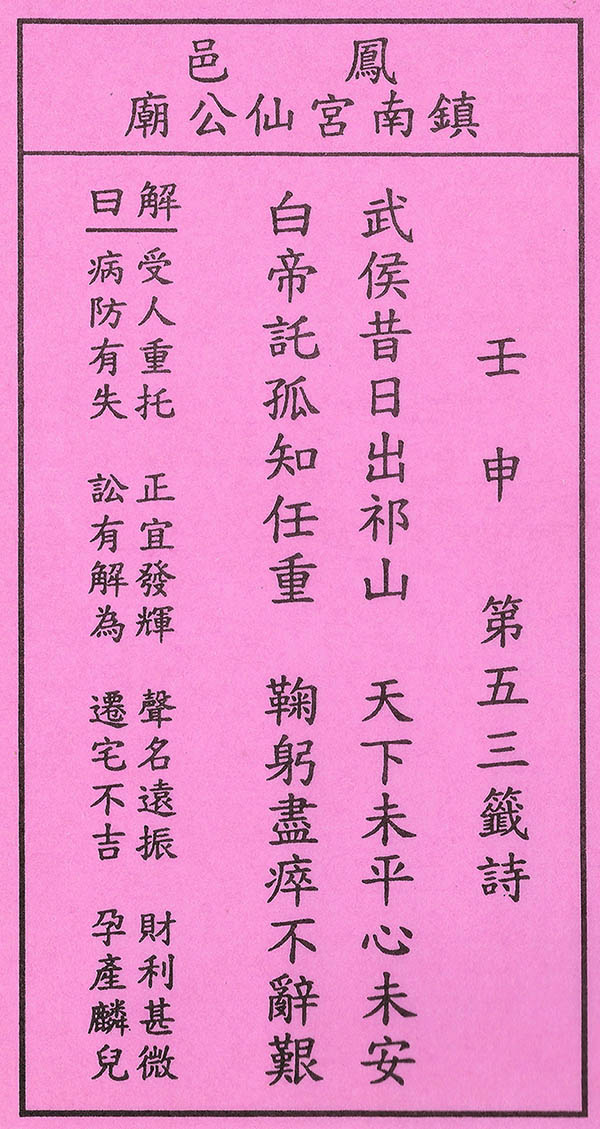 鳳邑
鎮南宮仙公廟
壬申 第五三籤詩
武侯昔日出祁山 天下未平心未安
白帝託孤知任重 鞠躬盡瘁不辭艱
解曰
受人重托 正宜發輝 聲名遠振 財利甚微
病防有失 訟有解為 遷宅不吉 孕產麟兒